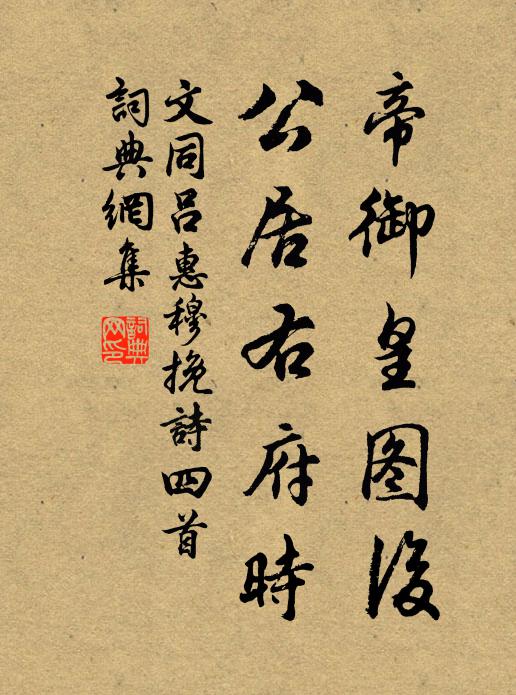 帝御皇图後
公居右府時
文同呂惠穆挽詩四首
詞典網集
詞典网印